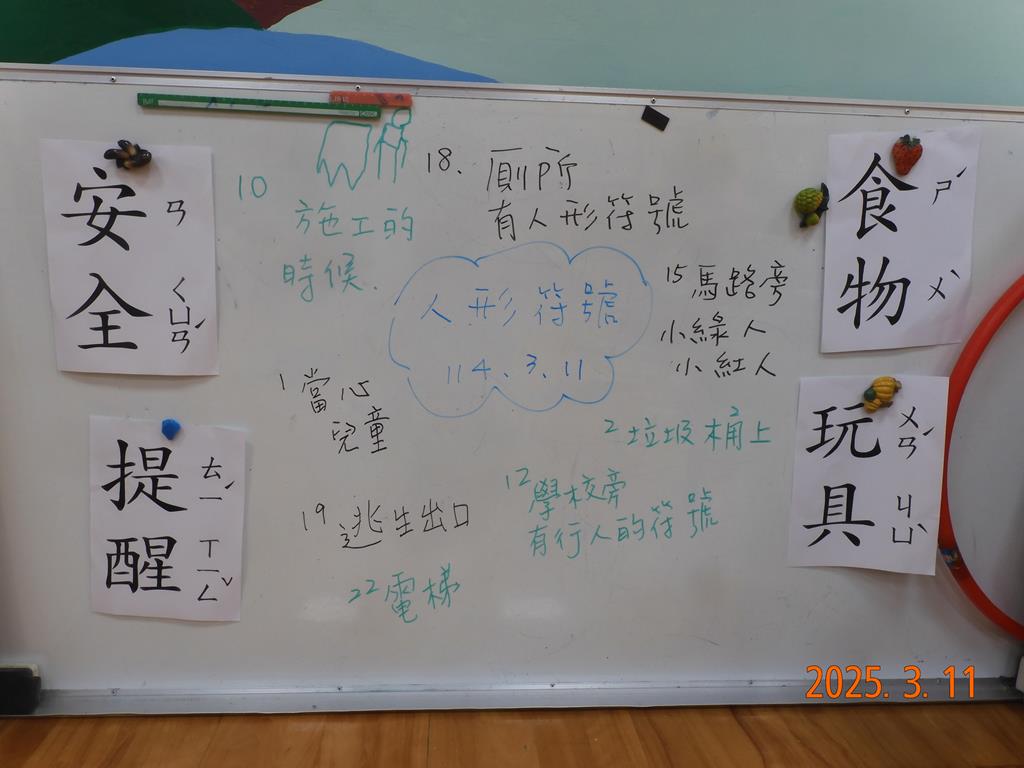 安 ㄢ
全 ㄑㄩㄢˊ
提 ㄊㄧˊ
醒 ㄒㄧㄥˇ
10
施工的
時候.
18. 廁所
有人形符號
人形符號
114.3.11
15 馬路旁
小綠人
小紅人
1 當心
兒童
2 垃圾桶上
12 學校旁
有行人的符號
19 逃生出口
22 電梯
食 ㄕˊ
物 ㄨˋ
玩 ㄨㄢˊ
具 ㄐㄩˋ
2025. 3. 11